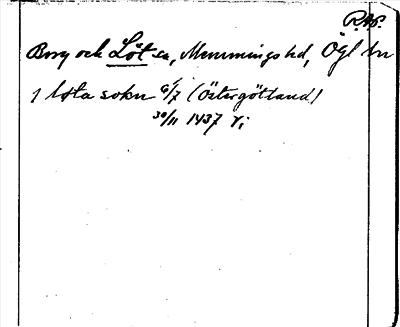 RAP.
Borg och Löt sn, Memmings hd, Ögl ln
j løta sokn 6/7 (Östergötland)
30/11 1437 Vi